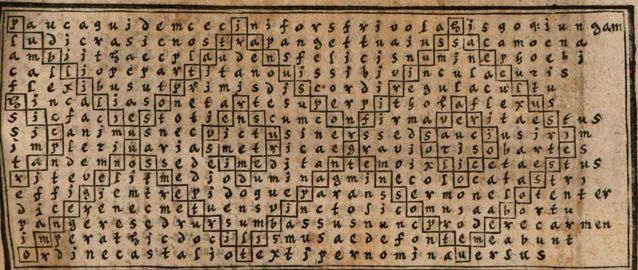 P a u c a q u i d e m c e c i n i f o r s f r i v o l a h i s q o q i u n g a m
l u d i c r a s i c n o s t r a p a n g e t t u a i u s s a c a m o e n a
a m b i t h a e c p l a u d e n s f e l i c i s n u m i n e p h o e b i
c a l l i o p e p a r t i t a n o u i s s i b i v i n c u l a c u r i s
f l e x i b u s u t p r i m i s d i s c o r d i r e g u l a c u l t u
h i n c a l i a s o n e t a r t e s u p e r p i t h o h a f l e x u s
s i c f a c i e s t o t i e n s c u m c o n f i r m a v e r i t a e s t u s
s i c a n i m u s n e c v i c t u s i n e r s s e d s a u c i u s i r i m
i m p l e t u a r i a s m e t r i c a e g r a v i o r i s o b a r t e s
t a n d e m n o s s e d e i m e d i t a n t e m o x l i c e t a e s t u s
r i t e v e l i t m e d i o d u m i n a g m i n e c o l o c a t a s t r i
e f f i g i e m t r e p i d o q u e p a r a n s s e r m o n e l a t e n t e r
d i c e r e n e c m e t u e n s v i n c t o l i c o m n i a a b o r t u
p a n g e r e s e d r u r s u m b a s s u s n u n c p r o d e r e c a r m e n
i m p e r a t h i c d o c i l i s m u s a e d e f o n t e m e a b u n t
o r d i n e c a s t a l o t e x t i p e r n o m i n a v e r s u s